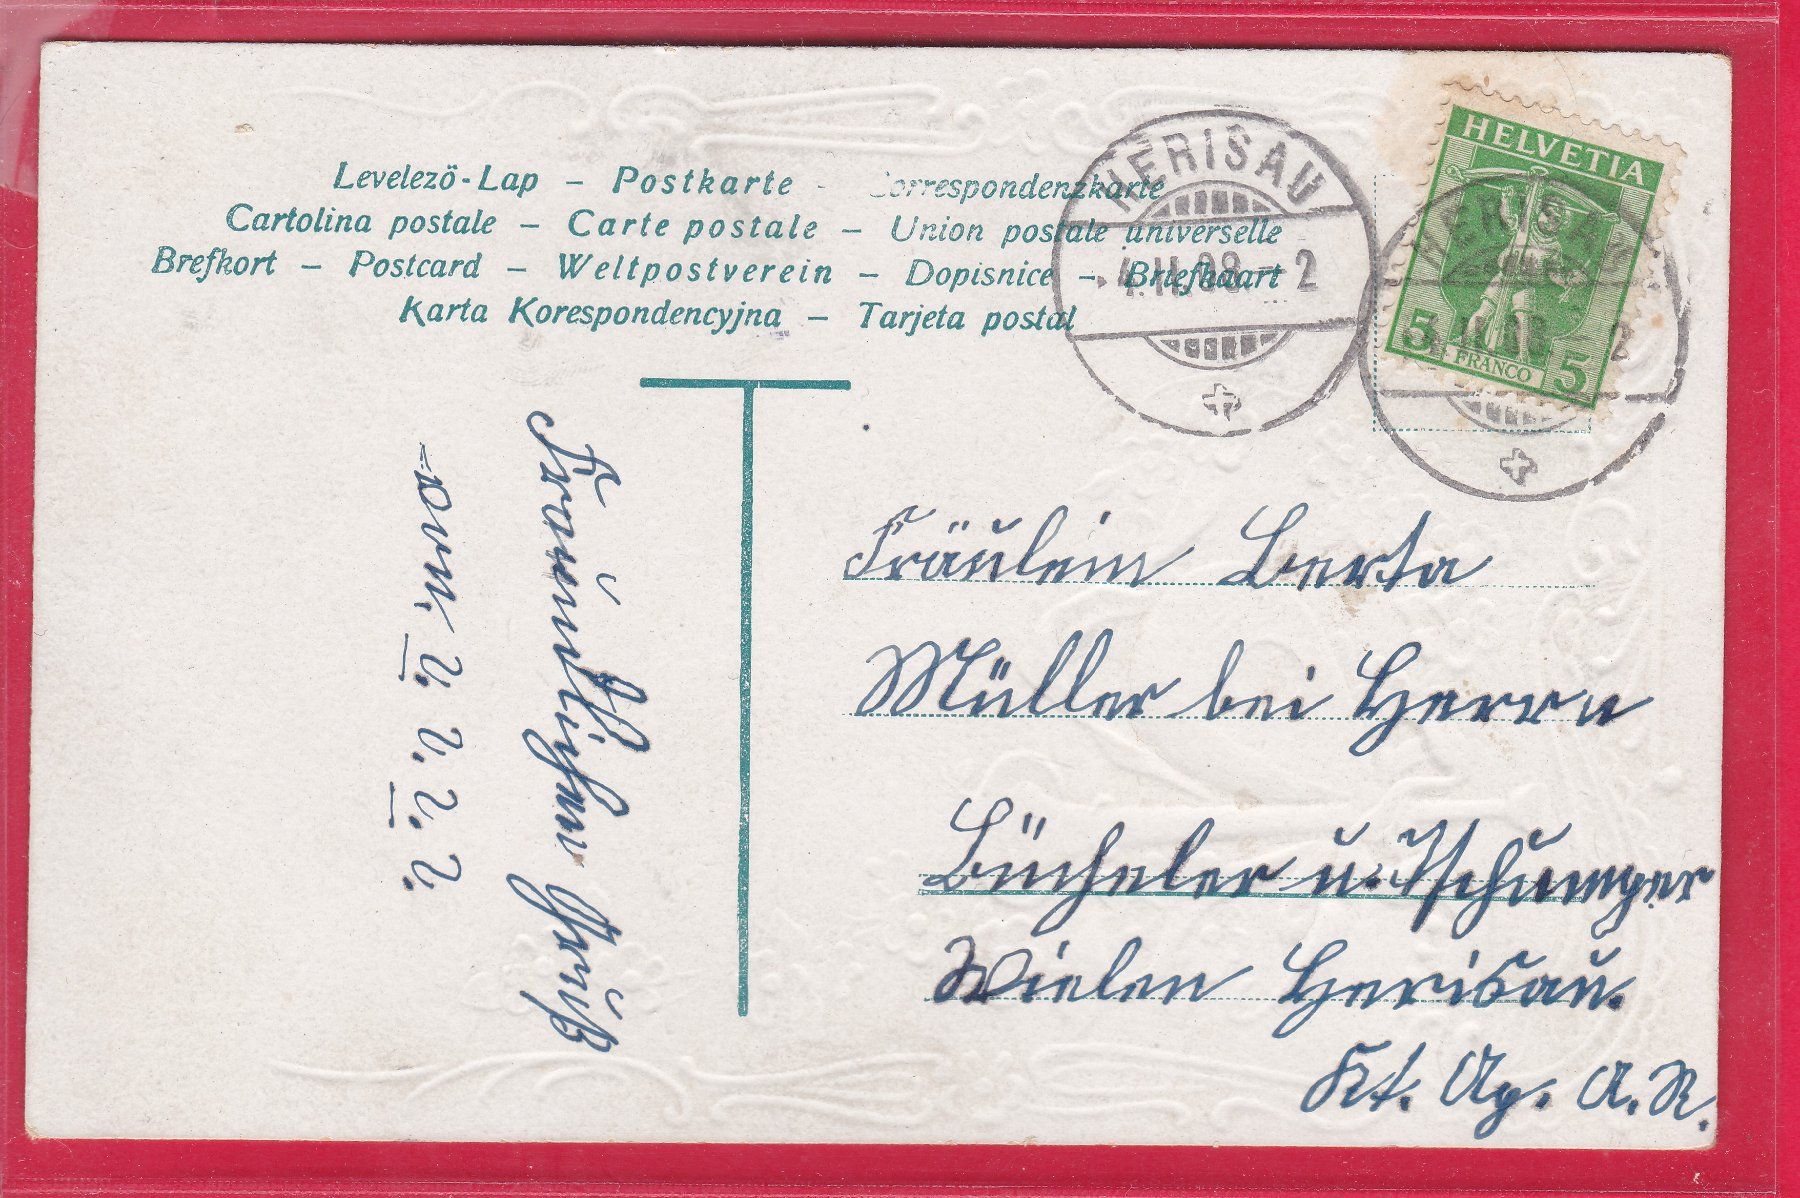 Levelező-Lap – Postkarte - Correspondenzkarte
Cartolina postale – Carte postale – Union postale universelle
Brefkort – Postcard – Weltpostverein – Dopisnice – Briefkaart
Karta Korespondencyjna – Tarjeta postal
HERISAU
4.II.08 – 2
HELVETIA
5 FRANCO 5
HERISAU
Fräulein Berta
Müller bei Herrn
Bücheler u. Tschumper
Wielen Herisau.
Kt. Ap. A. R.
Freundlichen Gruß
von